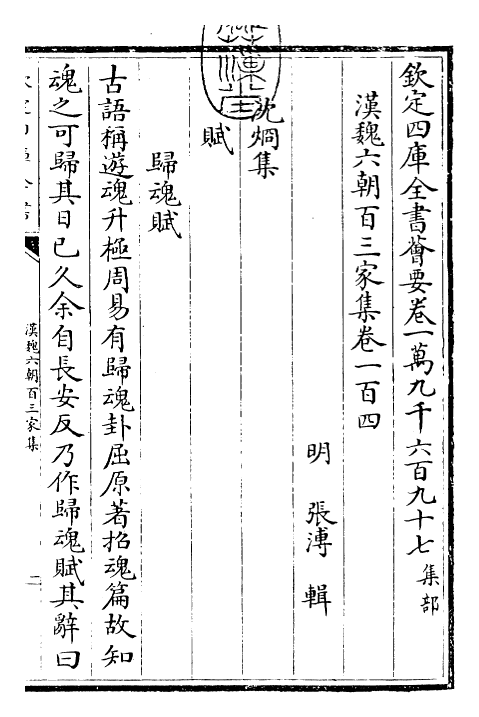 欽定四庫全書薈要卷一萬九千六百九十七 集部
漢魏六朝百三家集卷一百四
明 張溥 輯
沈烱集
賦
歸魂賦
古語稱遊魂升極周易有歸魂卦屈原著招魂篇故知
魂之可歸其日已久余自長安反乃作歸魂賦其辭曰
漢魏六朝百三家集